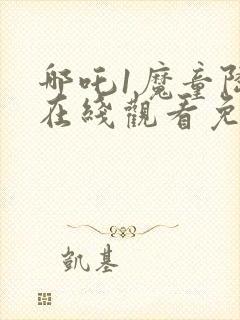 哪吒1魔童降
在綫觀看免
凱基